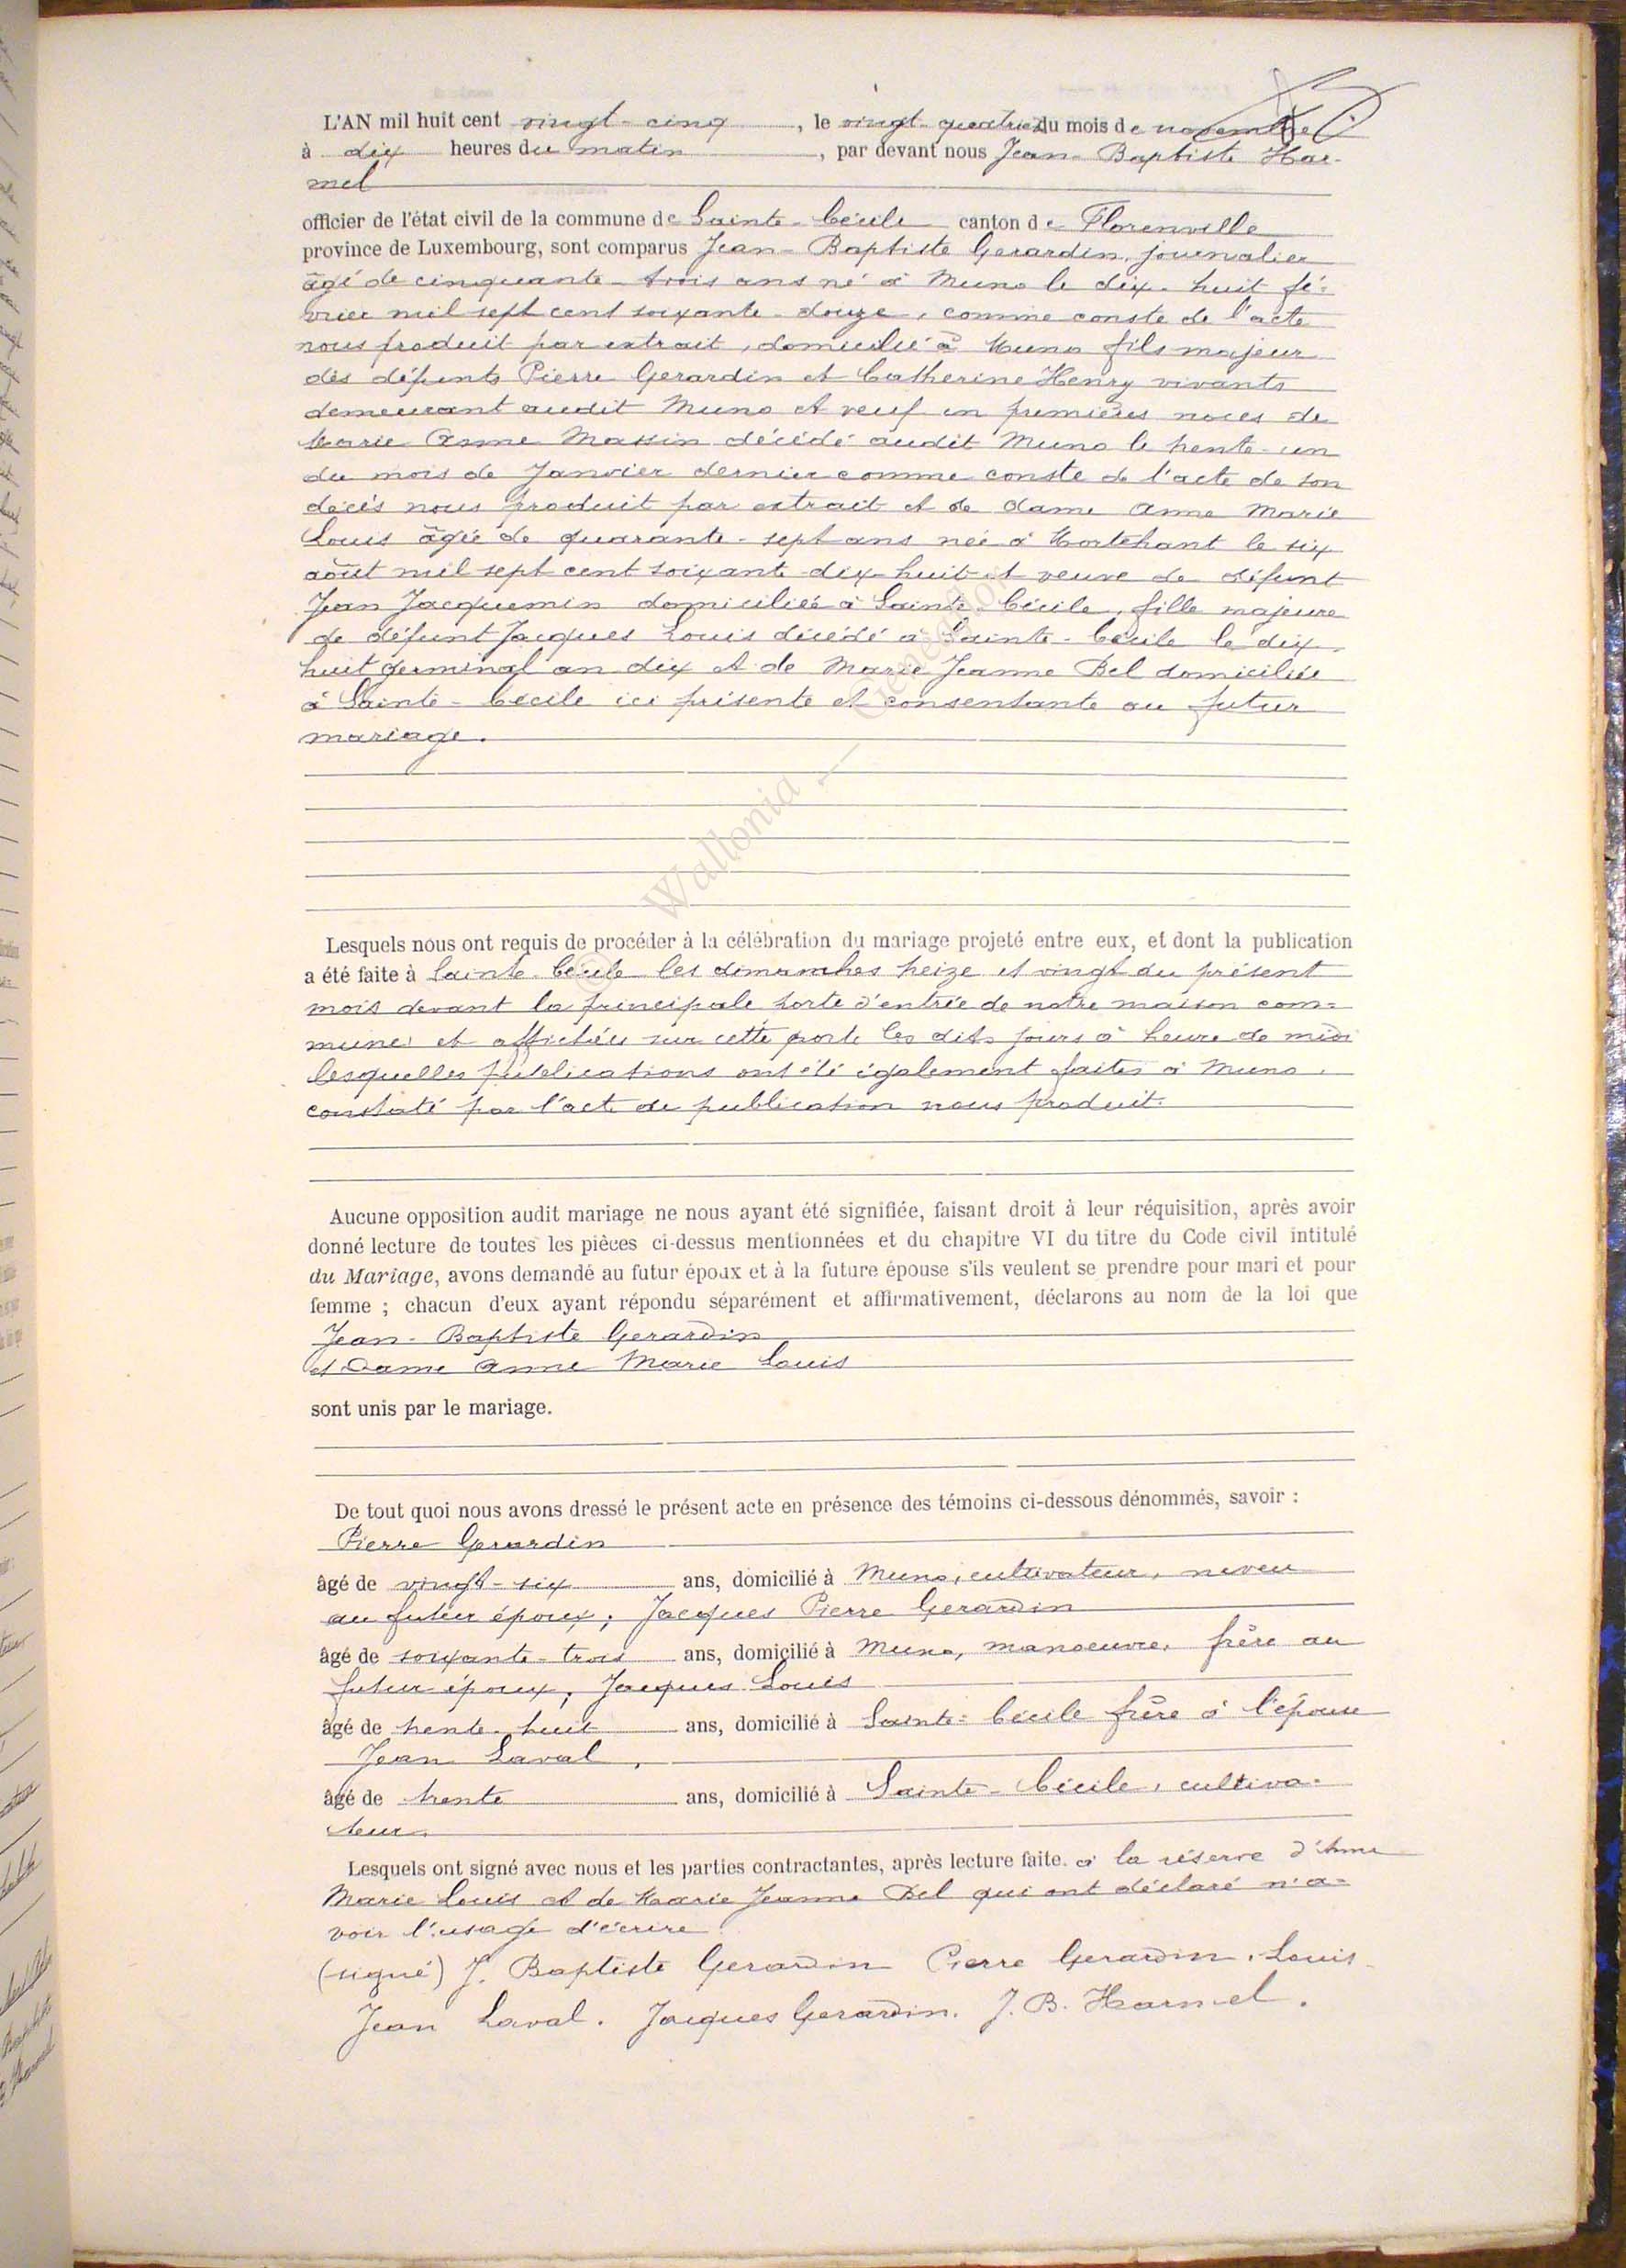 L'AN mil huit cent vingt-cinq, le vingt-quatre du mois de novembre
à dix heures du matin, par devant nous Jean-Baptiste Har-
mel
officier de l'état civil de la commune de Sainte-Cécile canton de Florenville
province de Luxembourg, sont comparus Jean-Baptiste Gerardin, journalier
âgé de cinquante-trois ans né à Muno le dix-huit fé-
vrier mil sept cent soixante-douze, comme conste de l'acte
nous produit par extrait, domicilié à Muno fils majeur
des défunts Pierre Gerardin et Catherine Henry vivants
demeurant audit Muno et veuf en premières noces de
Marie Anne Massin décédé audit Muno le trente-un
du mois de Janvier dernier comme conste de l'acte de son
décès nous produit par extrait et de dame Anne Marie
Louis âgée de quarante-sept ans née à Mortehant le six
août mil sept cent soixante-dix-huit et veuve de défunt
Jean Jacquemin domiciliée à Sainte-Cécile, fille majeure
de défunt Jacques Louis décédé à Sainte-Cécile le dix-
huit germinal an dix et de Marie Jeanne Bel domiciliée
à Sainte-Cécile ici présente et consentante au futur
mariage.
© Wallonia — Généalogie
Lesquels nous ont requis de procéder à la célébration du mariage projeté entre eux, et dont la publication
a été faite à Sainte-Cécile les dimanches treize et vingt du présent
mois devant la principale porte d'entrée de notre maison com-
mune et affichées sur cette porte les dits jours à heure de midi
lesquelles publications ont été également faites à Muno.
constaté par l'acte de publication nous produit.
Aucune opposition audit mariage ne nous ayant été signifiée, faisant droit à leur réquisition, après avoir
donné lecture de toutes les pièces ci-dessus mentionnées et du chapitre VI du titre du Code civil intitulé
du Mariage, avons demandé au futur époux et à la future épouse s'ils veulent se prendre pour mari et pour
femme ; chacun d'eux ayant répondu séparément et affirmativement, déclarons au nom de la loi que
Jean-Baptiste Gerardin
et Dame Anne Marie Louis
sont unis par le mariage.
De tout quoi nous avons dressé le présent acte en présence des témoins ci-dessous dénommés, savoir :
Pierre Gerardin
âgé de vingt-six ans, domicilié à Muno, cultivateur, neveu
au futur époux; Jacques Pierre Gerardin
âgé de soixante-trois ans, domicilié à Muno, manoeuvre, frère au
futur époux; Jacques Louis
âgé de trente-huit ans, domicilié à Sainte-Cécile frère à l'épouse
Jean Laval,
âgé de trente ans, domicilié à Sainte-Cécile, cultiva-
teur.
Lesquels ont signé avec nous et les parties contractantes, après lecture faite. à la réserve d'Anne
Marie Louis et de Marie Jeanne Bel qui ont déclaré n'a-
voir l'usage d'écrire
(signé) J. Baptiste Gerardin Pierre Gerardin. Louis
Jean Laval. Jacques Gerardin. J. B. Harmel.